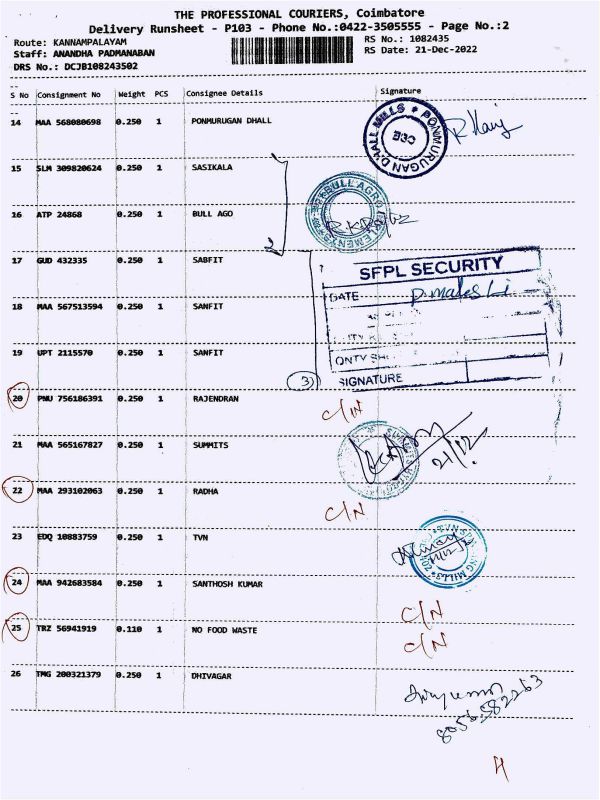 THE PROFESSIONAL COURIERS, Coimbatore
Delivery Runsheet - P103 - Phone No.:0422-3505555 - Page No.:2
Route: KANNAMPALAYAM
RS No.: 1082435
Staff: ANANDHA PADMANABAN
RS Date: 21-Dec-2022
DRS No.: DCJB108243502
S No Consignment No Weight PCS Consignee Details Signature
14 MAA 568080698 0.250 1 PONMURUGAN DHALL
PONMURUGAN DHALL MILLS
15 SLM 309820624 0.250 1 SASIKALA
16 ATP 24868 0.250 1 BULL AGO
2
17 GUD 432335 0.250 1 SABFIT
SFPL SECURITY
DATE
18 MAA 567513594 0.250 1 SANFIT
19 UPT 2115570 0.250 1 SANFIT
3
SIGNATURE
20 PNU 756186391 0.250 1 RAJENDRAN
C/N
21 MAA 565167827 0.250 1 SUMMITS
21/12
22 MAA 293102063 0.250 1 RADHA
C/N
23 EDQ 10883759 0.250 1 TVN
24 MAA 942683584 0.250 1 SANTHOSH KUMAR
C/N
25 TRZ 56941919 0.110 1 NO FOOD WASTE
C/N
26 TMG 200321379 0.250 1 DHIVAGAR